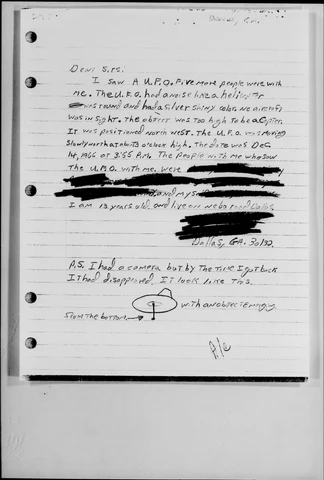 Dallas, GA.
Dear Sirs:
I saw A U.F.O. Five more people were with
me. The U.F.O. had a noise like a helicopter
was round and had a silver shiny color. No aircrafts
was in sight. The object was too high to be a Copter.
It was positioned north west. The U.F.O. was moving
slowly north at about 3 o'clock high. The date was Dec
14, 1966 at 3:55 P.M. The People with me who saw
the U.F.O. with me. were
and myself
I am 13 years old and live on Nebo road Dallas,
Dallas, GA. 30132.
P.S. I had a camera but by the time I got back
It had disappeared. It look like this.
with an object emerging
from the bottom.